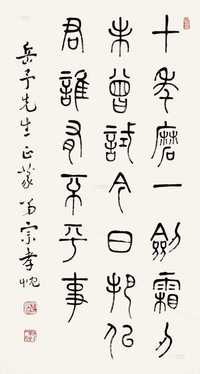 十年磨一劍霜刃
未曾試今日把似
君誰有不平事
岳先生正篆宗孝忱